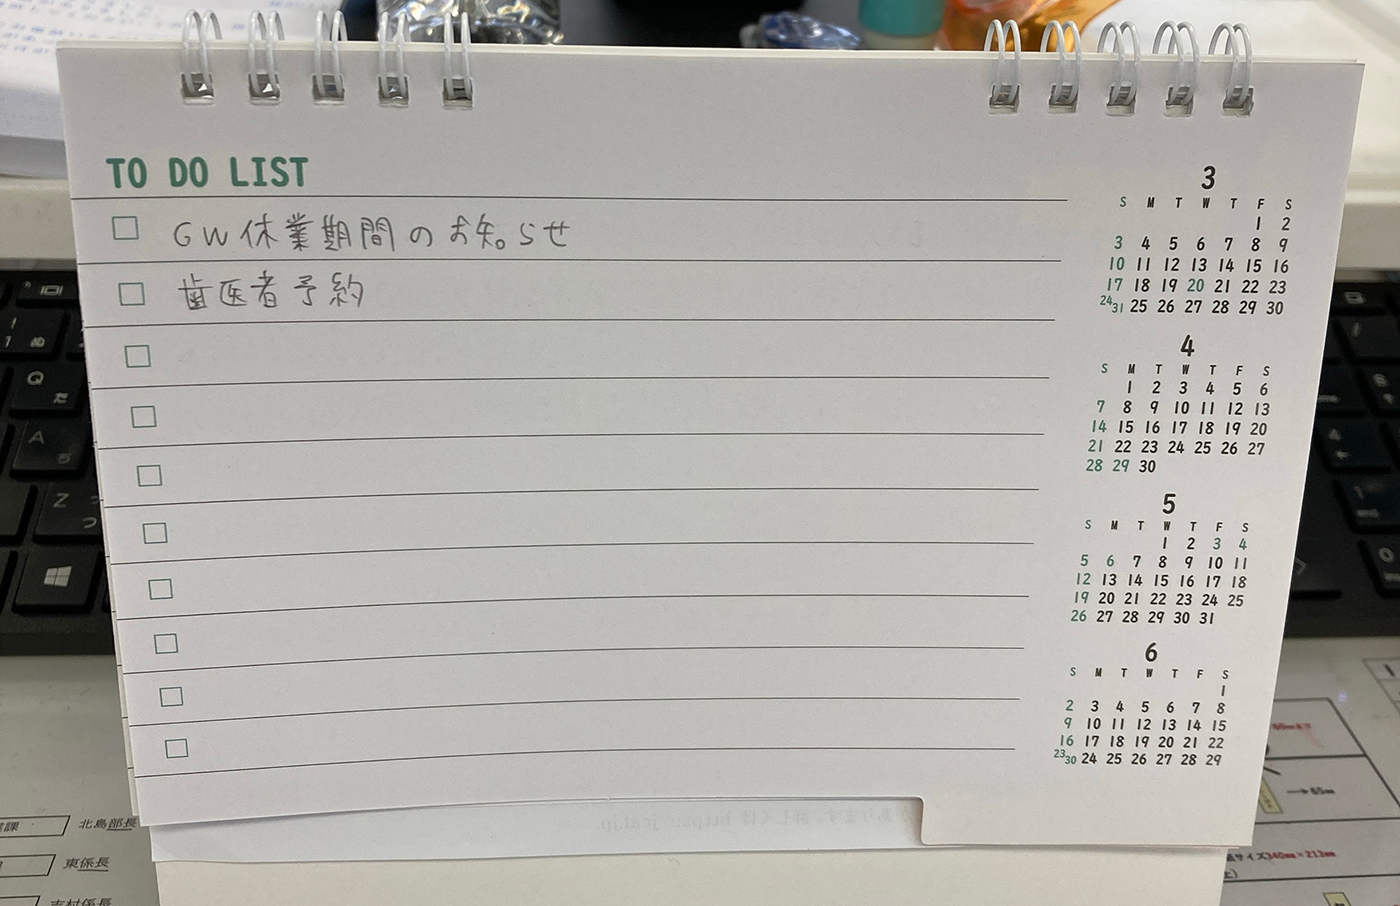 TO DO LIST
GW休業期間のお知らせ
歯医者予約
3
S M T W T F S
1 2
3 4 5 6 7 8 9
10 11 12 13 14 15 16
17 18 19 20 21 22 23
24/31 25 26 27 28 29 30
4
S M T W T F S
1 2 3 4 5 6
7 8 9 10 11 12 13
14 15 16 17 18 19 20
21 22 23 24 25 26 27
28 29 30
5
S M T W T F S
1 2 3 4
5 6 7 8 9 10 11
12 13 14 15 16 17 18
19 20 21 22 23 24 25
26 27 28 29 30 31
6
S M T W T F S
1
2 3 4 5 6 7 8
9 10 11 12 13 14 15
16 17 18 19 20 21 22
23/30 24 25 26 27 28 29
! ぬ
Q た
A ち
Z つ
課 北島部長
東係長
志村係長
→65㎜
サイズ340㎜×213㎜